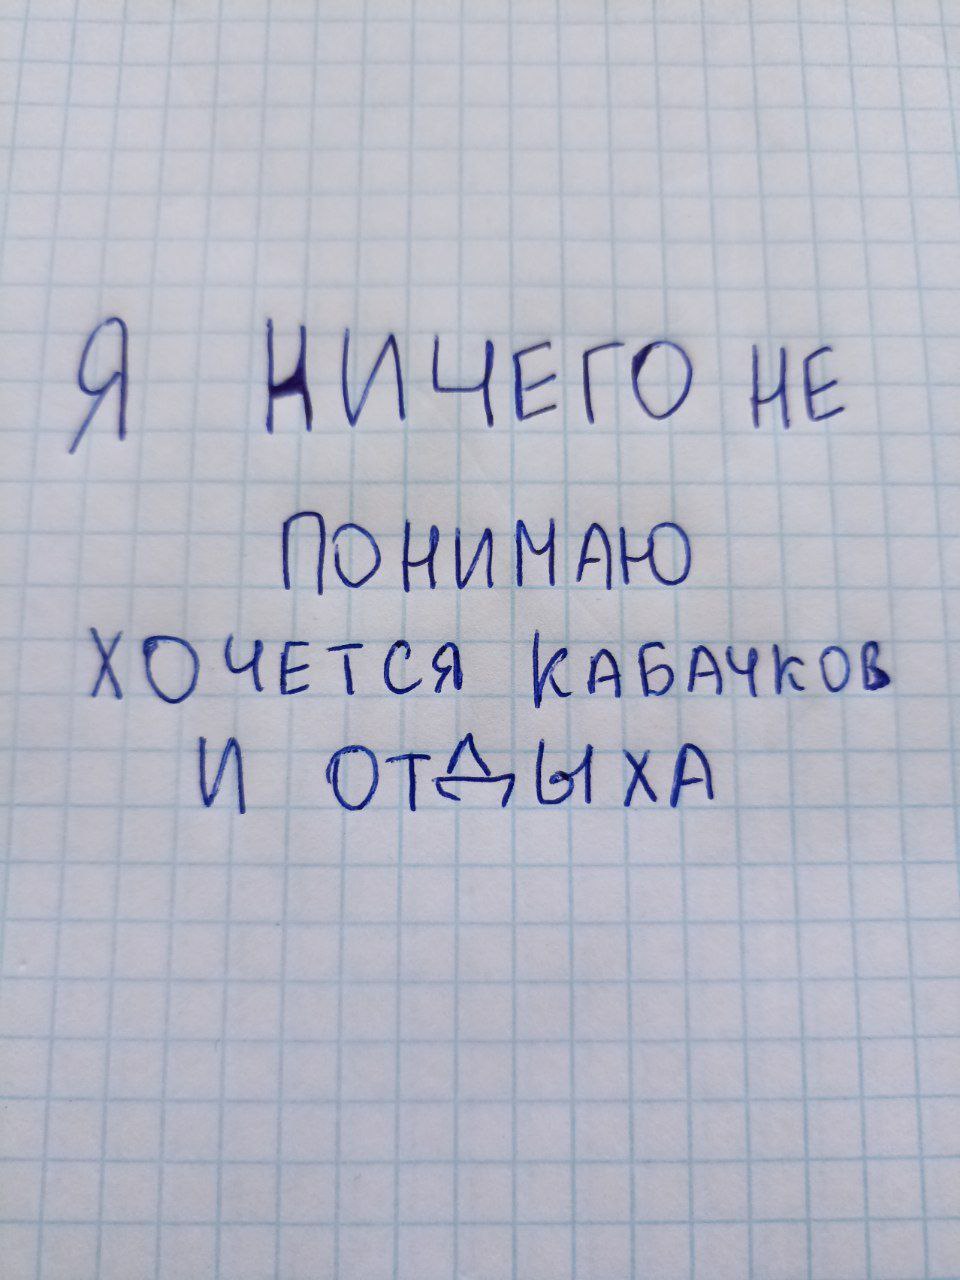 Я НИЧЕГО НЕ
ПОНИМАЮ
ХОЧЕТСЯ КАБАЧКОВ
И ОТДЫХА